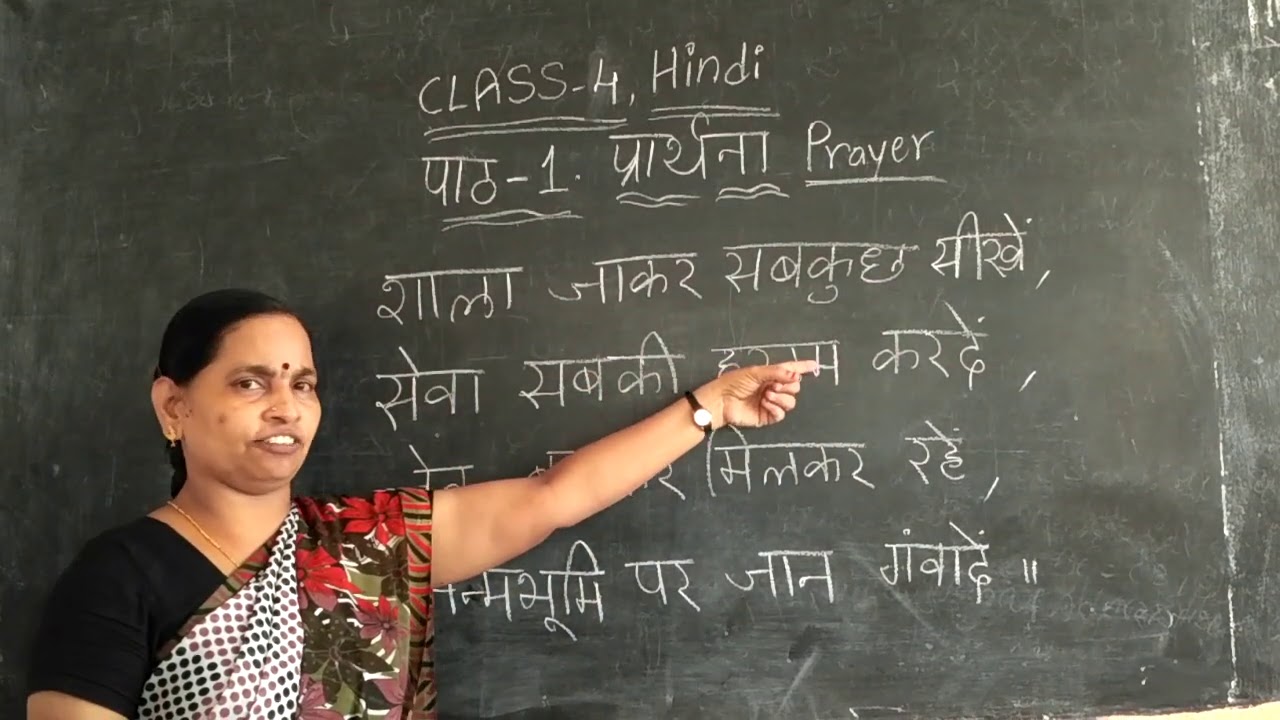 CLASS-4, Hindi
पाठ-1. प्रार्थना Prayer
शाला जाकर सबकुछ सीखें,
सेवा सबकी करदें,
मिलकर रहें,
पर जान गंवादें॥